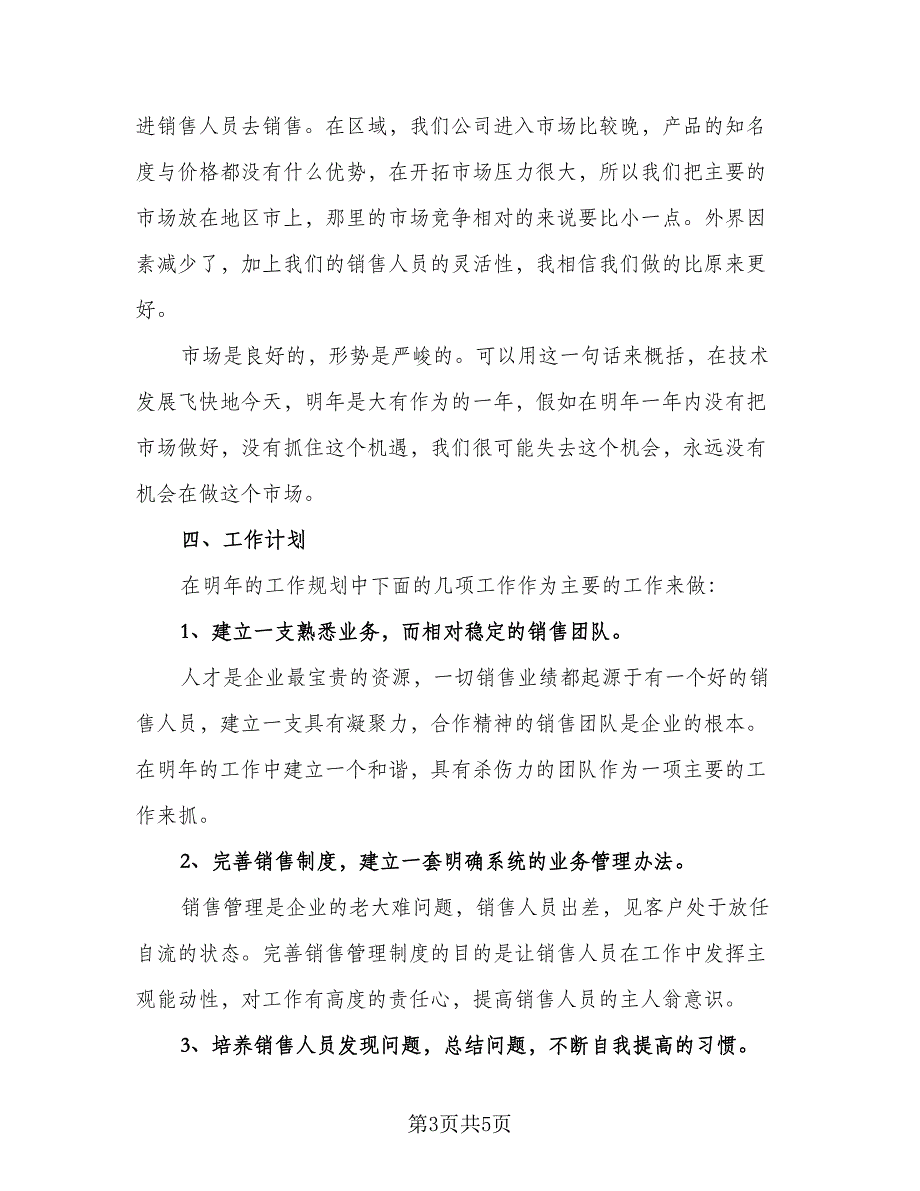 进销售人员去销售。在区域，我们公司进入市场比较晚，产品的知名
度与价格都没有什么优势，在开拓市场压力很大，所以我们把主要的
市场放在地区市上，那里的市场竞争相对的来说要比小一点。外界因
素减少了，加上我们的销售人员的灵活性，我相信我们做的比原来更
好。
市场是良好的，形势是严峻的。可以用这一句话来概括，在技术
发展飞快地今天，明年是大有作为的一年，假如在明年一年内没有把
市场做好，没有抓住这个机遇，我们很可能失去这个机会，永远没有
机会在做这个市场。
四、工作计划
在明年的工作规划中下面的几项工作作为主要的工作来做：
1、建立一支熟悉业务，而相对稳定的销售团队。
人才是企业最宝贵的资源，一切销售业绩都起源于有一个好的销
售人员，建立一支具有凝聚力，合作精神的销售团队是企业的根本。
在明年的工作中建立一个和谐，具有杀伤力的团队作为一项主要的工
作来抓。
2、完善销售制度，建立一套明确系统的业务管理办法。
销售管理是企业的老大难问题，销售人员出差，见客户处于放任
自流的状态。完善销售管理制度的目的是让销售人员在工作中发挥主
观能动性，对工作有高度的责任心，提高销售人员的主人翁意识。
3、培养销售人员发现问题，总结问题，不断自我提高的习惯。
第3页共5页